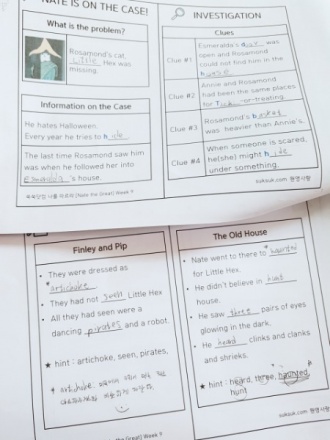 NATE IS ON THE CASE!
What is the problem?
Rosamond's cat,
Little Hex was
missing.
Information on the Case
He hates Halloween.
Every year he tries to hide.
The last time Rosamond saw him
was when he followed him into
Esmeralda's house.
INVESTIGATION
Clues
Clue #1
Esmeralda's door was
open and Rosamond
could not find him in the
house.
Clue #2
Annie and Rosamond
had been the same places
for Trick-or-treating.
Clue #3
Rosamond's basket
was heavier than Annie's.
Clue #4
When someone is scared,
he(she) might hide
under something.
suksuk.com
Finley and Pip
They were dressed as
artichoke.
They had not seen Little Hex
All they had seen were a
dancing pirates and a robot.
★ hint : artichoke, seen, pirates,
* artichoke :
The Old House
Nate went to there to haunted
for Little Hex.
He didn't believe in hunt
house.
He saw three pairs of eyes
glowing in the dark.
He heard clinks and clanks
and shrieks.
★ hint : heard, three, haunted,
hunt
suksuk.com
(Nate the Great) Week 7